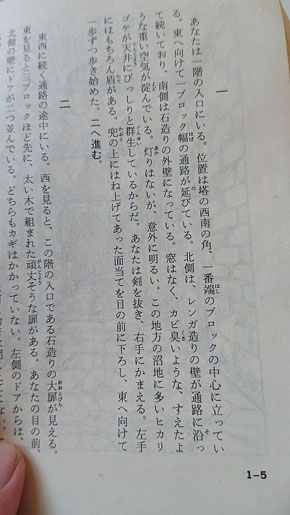 一
あなたは一階の入口にいる。位置は塔の西南の角、一番端のブロックの中心に立ってい
る。東へ向けて一ブロック幅の通路が延びている。北側は、レンガ造りの壁が通路に沿っ
て続いており、南側は石造りの外壁になっている。窓はなく、カビ臭いような、すえたよ
うな重い空気が淀んでいる。灯りはないが、意外に明るい。この地方の沼地に多いヒカリ
ゴケが天井にびっしりと群生しているからだ。あなたは剣を抜き、右手にかまえる。左手
にはもちろん盾がある。兜の上にはね上げてあった面当てを目の前に下ろし、東へ向けて
一歩ずつ歩き始めた。二へ進む。
二
東西に続く通路の途中にいる。西を見ると、この階の入口である石造りの大扉が見える。
東を見ると三ブロックほど先に、太い木で組まれた頑丈そうな扉がある。あなたの目の前、
北側の壁にドアが二つ並んでいる。どちらもカギはかかっていない。左側のドアからは、
1-5